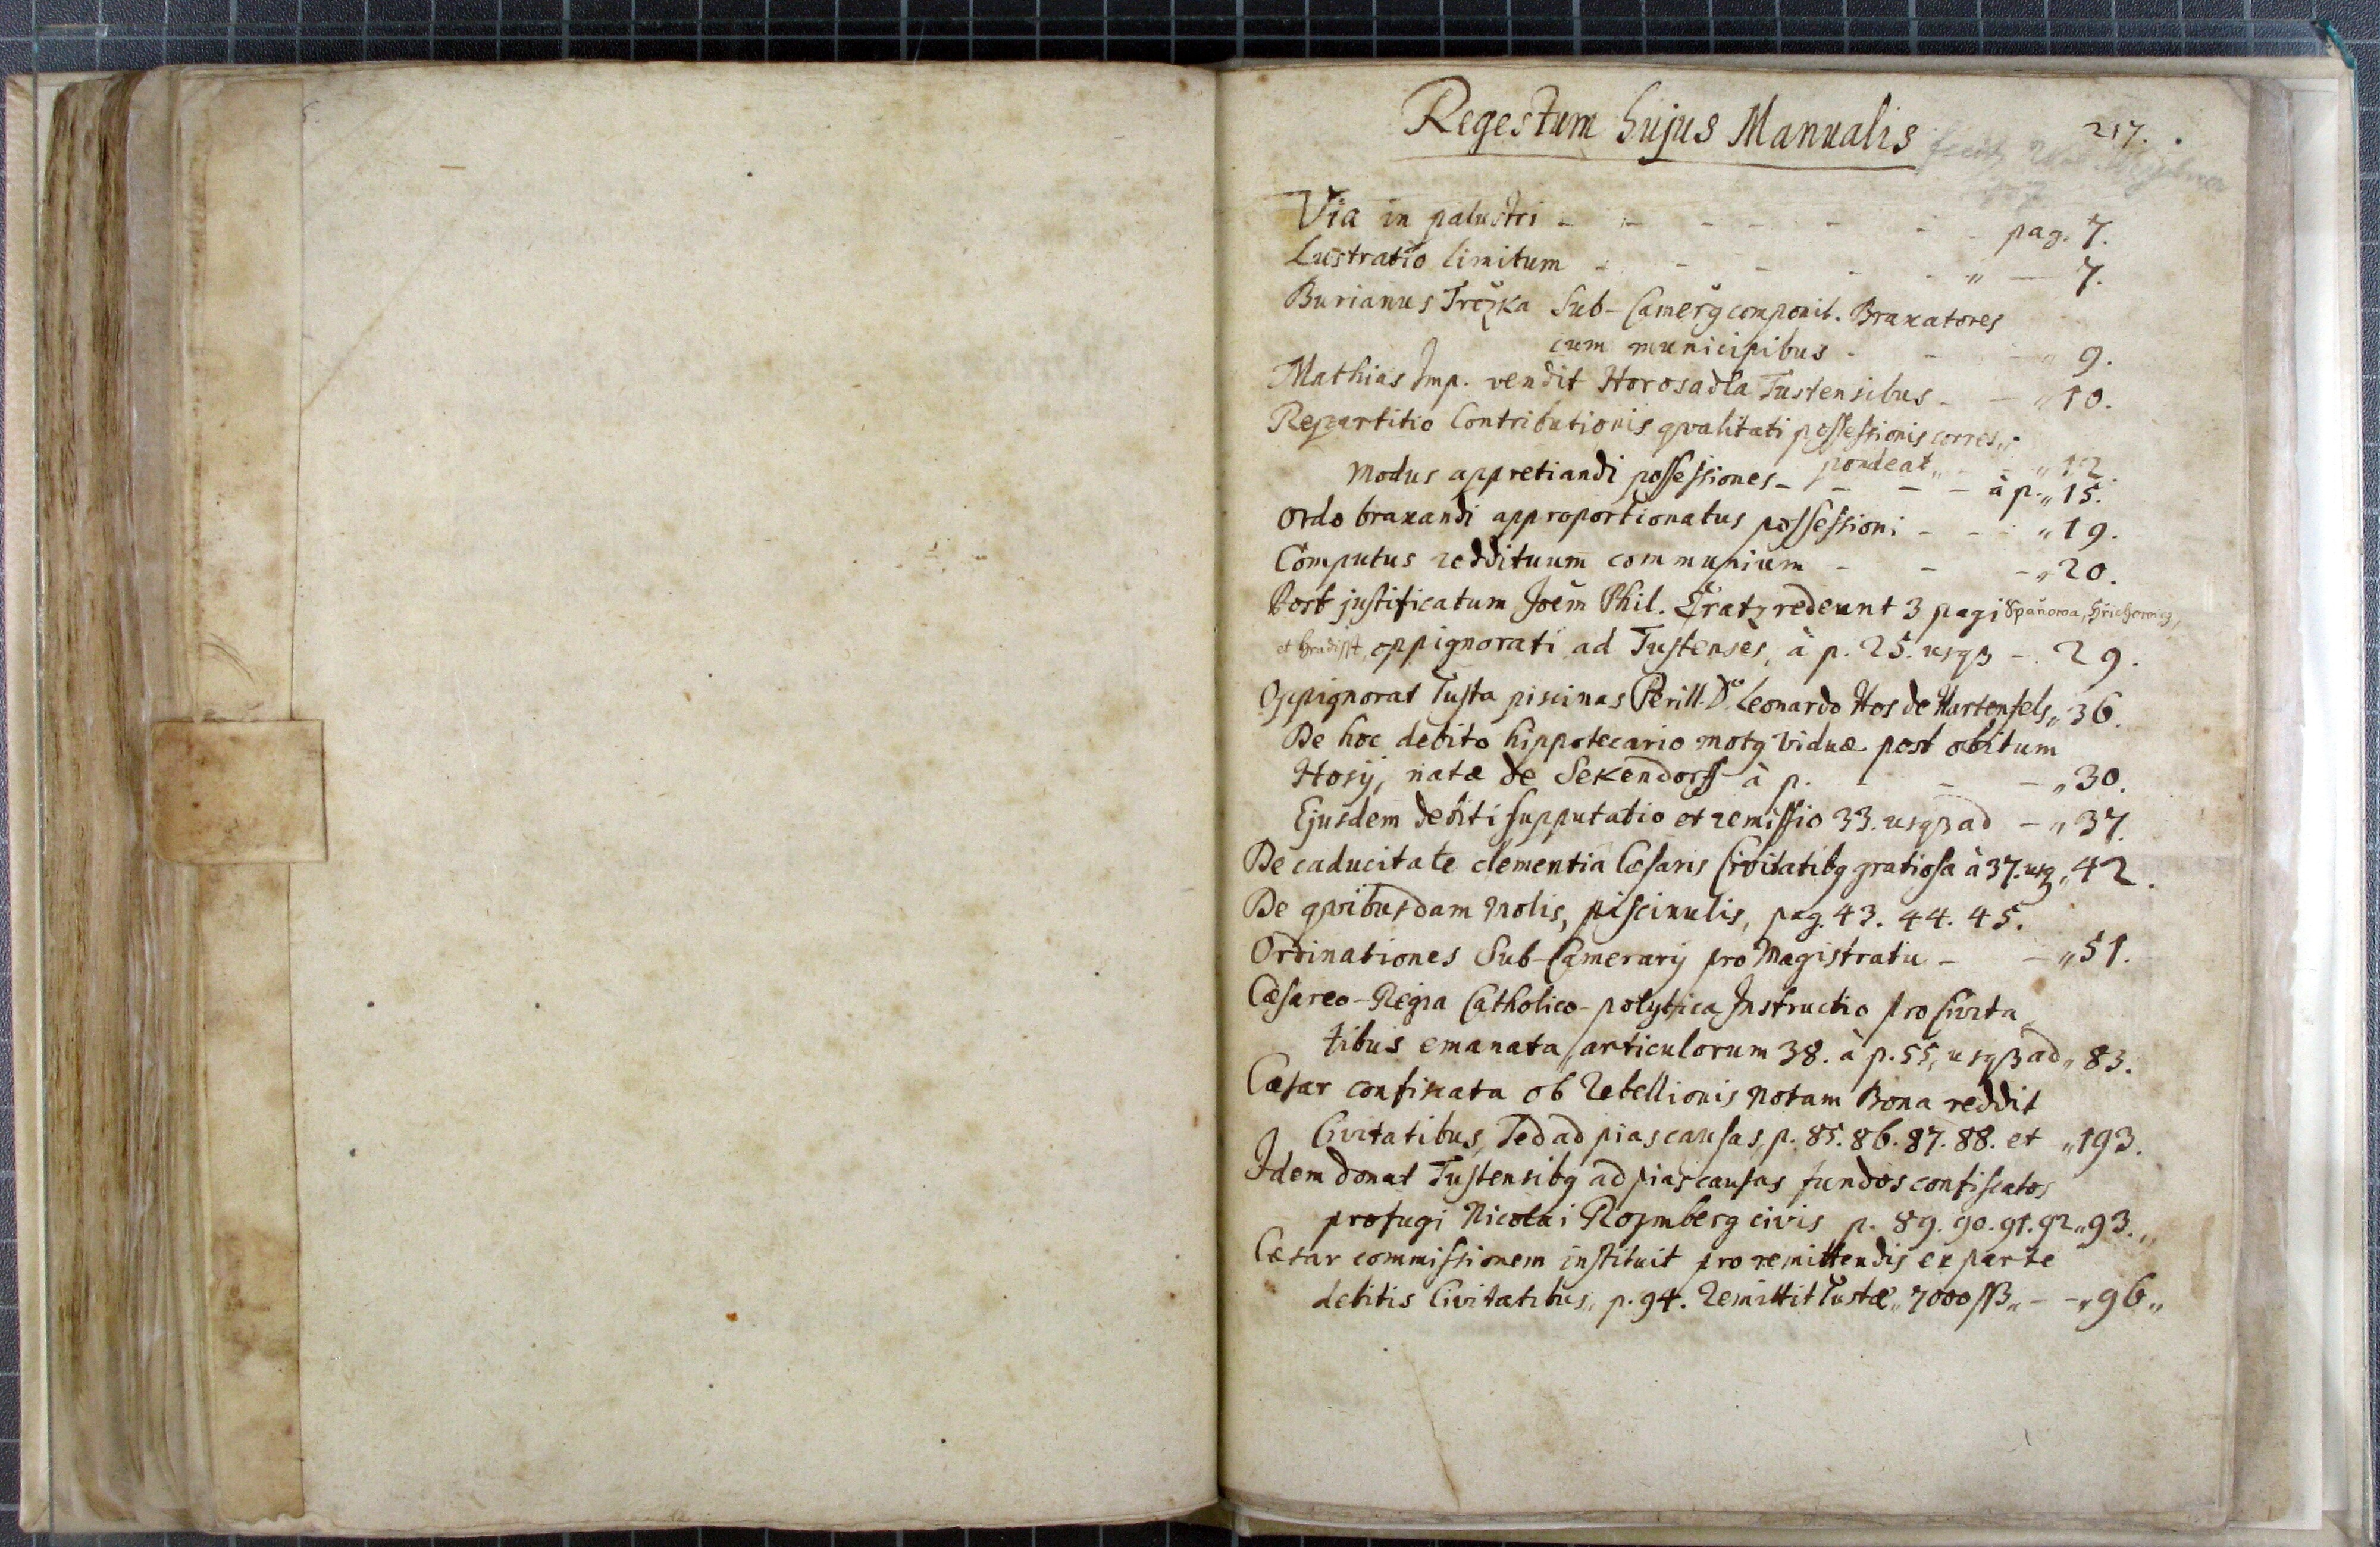 Regestum hujus Manualis
217.
Via in palustri - - - - - - - pag. 7.
Lustratio limitum - - - - - „ — 7.
Burianus Trčzka Sub-Camerg componit. Braxatores
cum municipibus - - - „ 9.
Mathias Imp. vendit Horosadla Tustensibus - - „ 10.
Repartitio Contributionis qvalitati possessionis corres„
pondeat„ - - „ 12.
Modus appretiandi possessiones - - - - à p. „ 15.
Ordo braxandi approportionatus possessioni - - - „ 19.
Computus reddituum communium - - - „ 20.
Post justificatum Joēm Phil. Kratz redeunt 3 pagi Spañowa, Hřichowicz,
et Hradisst, oppignorati ad Tustenses, à p. 25. usqз - . 29.
Oppignorat Tusta piscinas Perill. Dº Leonardo Hos de Hartenfels „ 36.
De hoc debito hippotecario motg viduæ post obitum
Hosÿ, natæ de Sekendorff à p. - - - „ 30.
Ejusdem debiti supputatio et remissio 33. usqз ad - „ 37.
De caducitate clementia Cæsaris Civitatibg gratiosa à 37. usqз „ 42.
De qvibusdam molis, piscinulis, pag. 43. 44. 45.
Ordinationes Sub-Camerarÿ pro Magistratu - - „ 51.
Cæsareo-Regia Catholico-polytica Instructio pro Civita„
tibus emanata, articulorum 38. à p. 55, usqз ad „ 83.
Cæsar confiscata ob Rebellionis notam Bona reddit
Civitatibus, Sed ad pias causas, p. 85. 86. 87. 88. et „ 193.
Idem donat Tustensibg ad pias causas fundos confiscatos
profugi Nicolai Rozmberg civis p. 89. 90. 91. 92 „ 93.„
Cæsar commissionem instituit pro remittendis ex parte
debitis Civitatibus, p. 94. Remittit Tustæ „ 7000 ss„ - - „ 96„